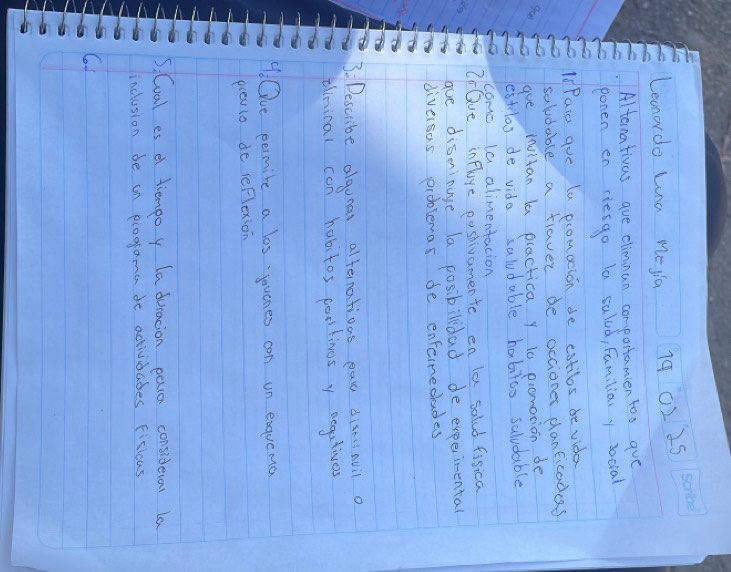 Leonardo Luna Mejía 19 02 25 Scribe
Alternativas que eliminan comportamientos que
ponen en riesgo la salud, familiar y social
1: Para que la promoción de estilos de vida
saludable a traver de acciones planficadas
que invitan la practica y la promoción de
estilos de vida saludable habitos saludable
como la alimentacion
2: Que influye positivamente en la salud fisica
que disminuye la posibilidad de experimental
diversos problemas de enfermedades
3: Describe algunas alternativas para disminuil o
eliminar con habitos positivos y negativos
4: Que permite a los jovenes con un esquema
previo de reflexión
5: Cual es el tiempo y la duración para considerar la
inclusion de un programa de actividades Fisicas
6: